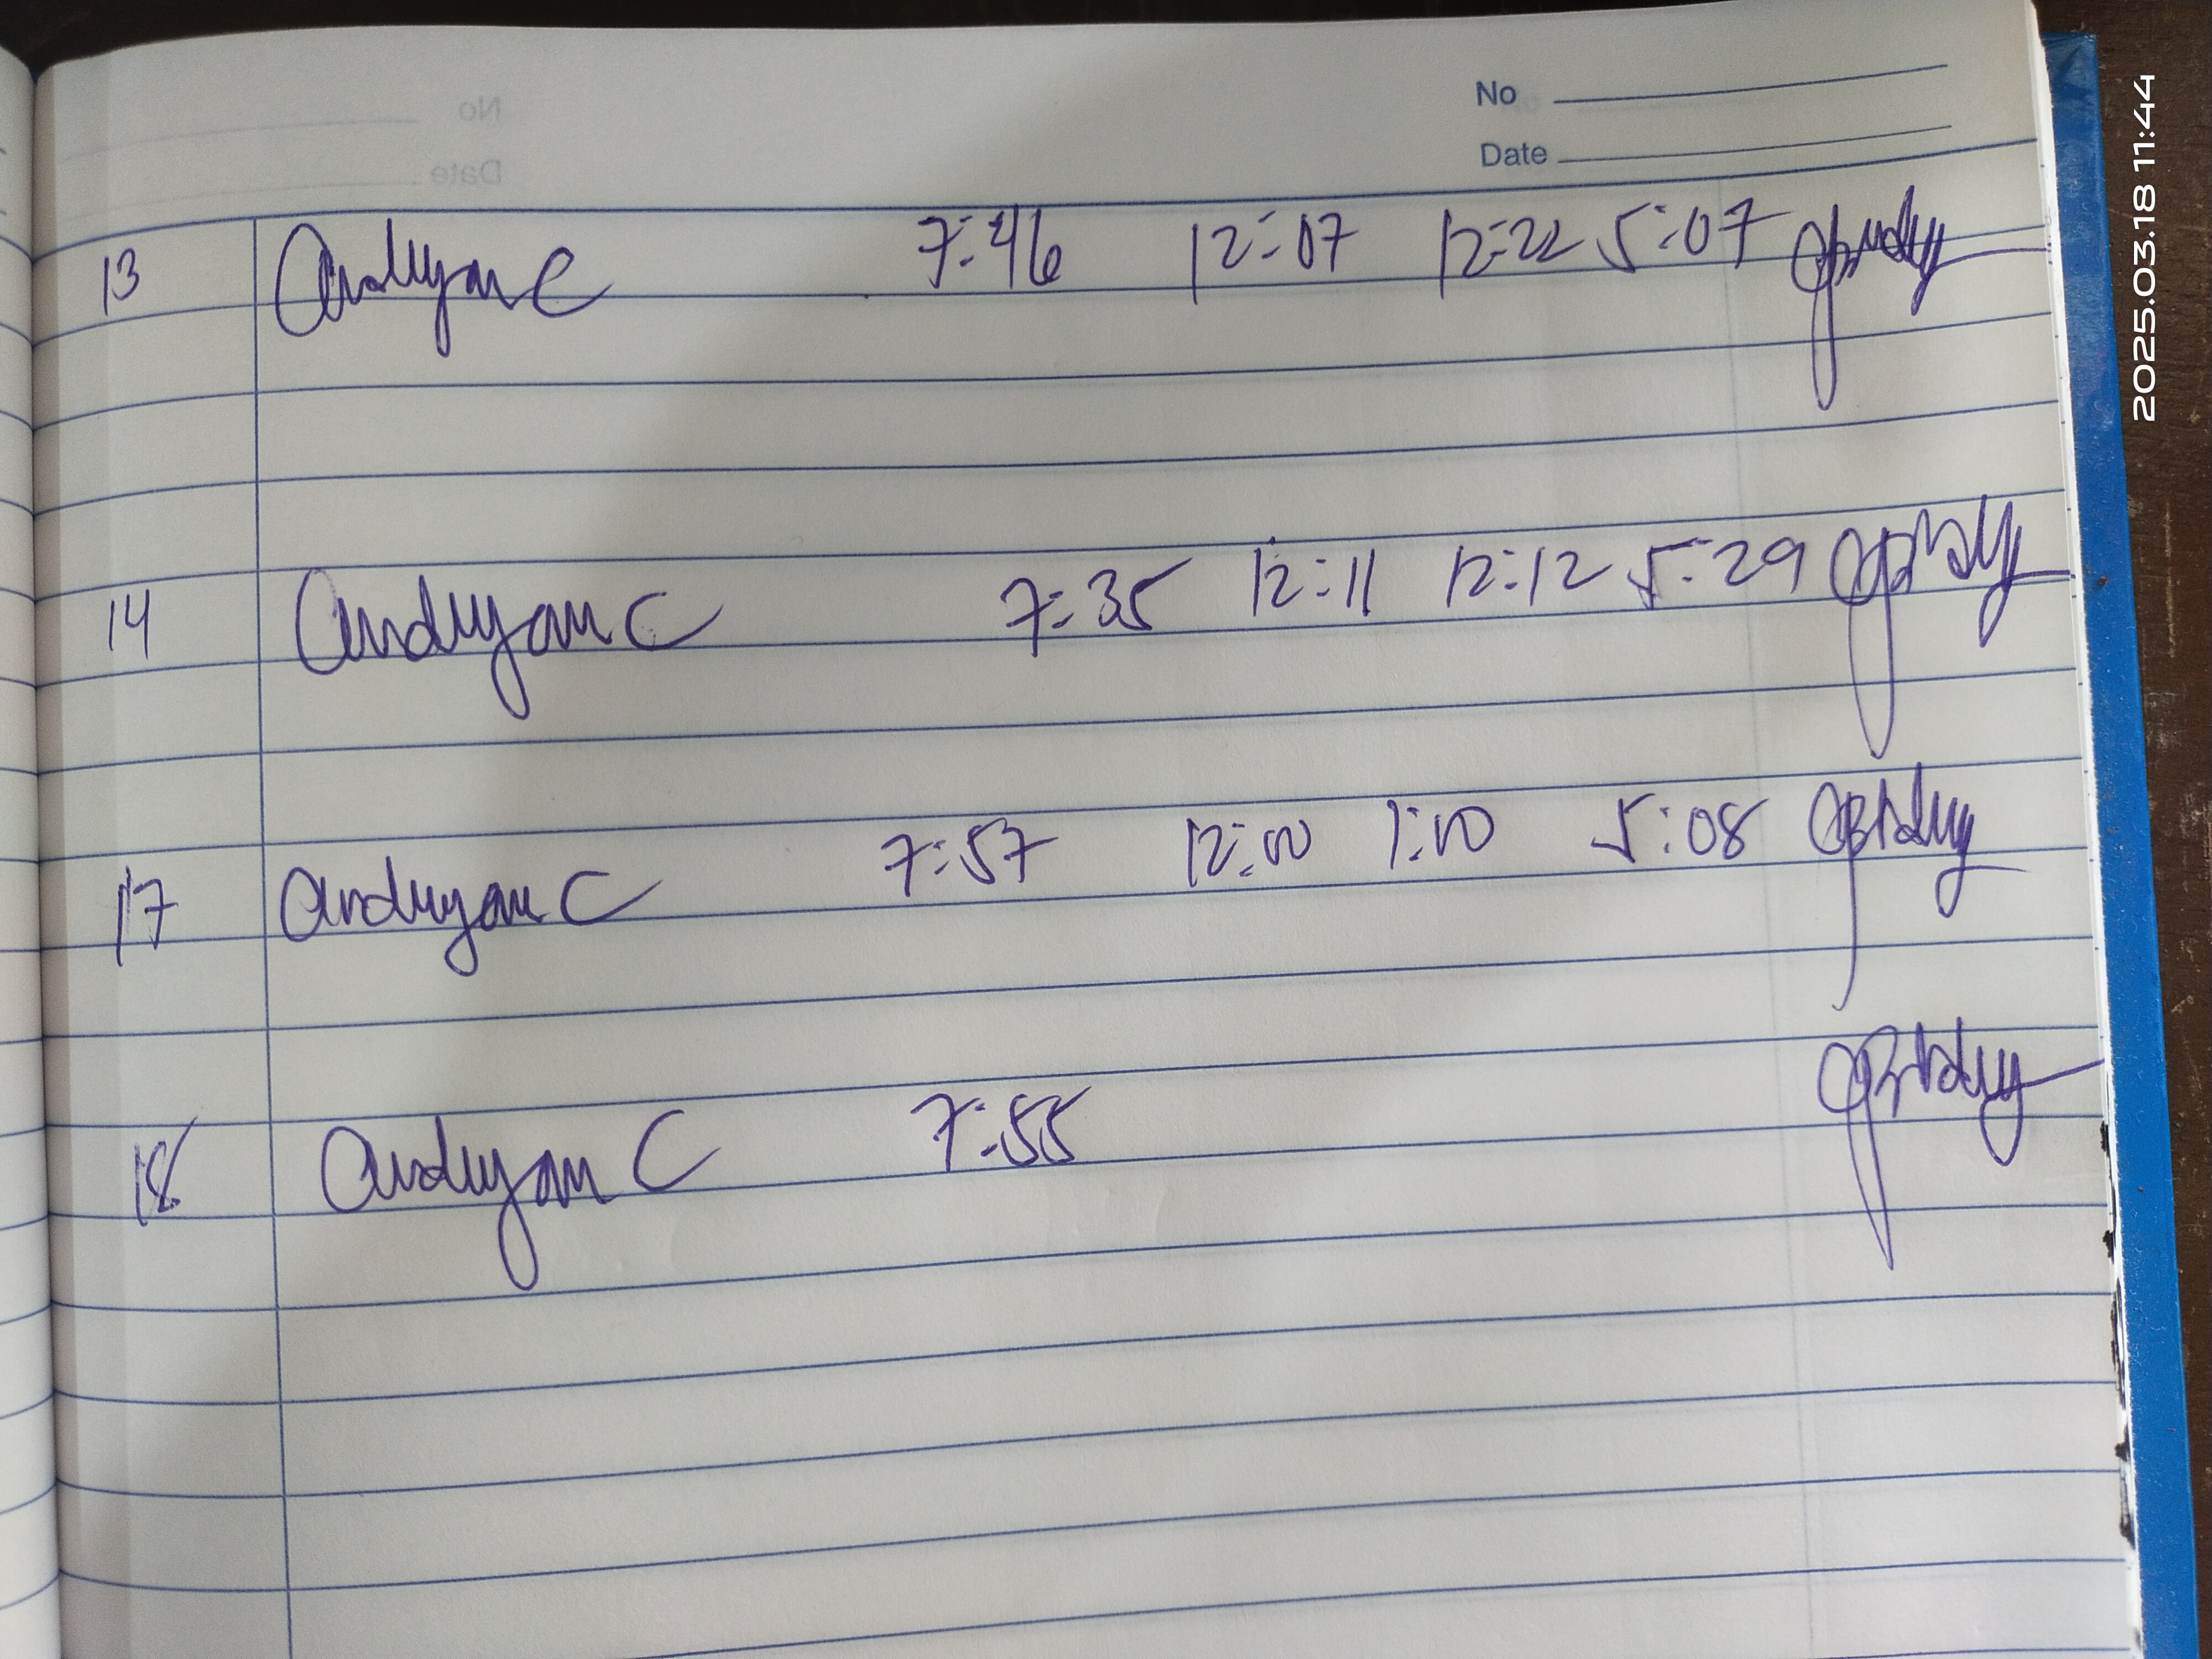 No
Date
13 Andryan C 7:46 12:07 12:22 5:07
14 Andryan C 7:35 12:11 12:12 5:29
17 Andryan C 7:57 12:00 1:00 5:08
18 Andryan C 7:55
2025.03.18 11:44